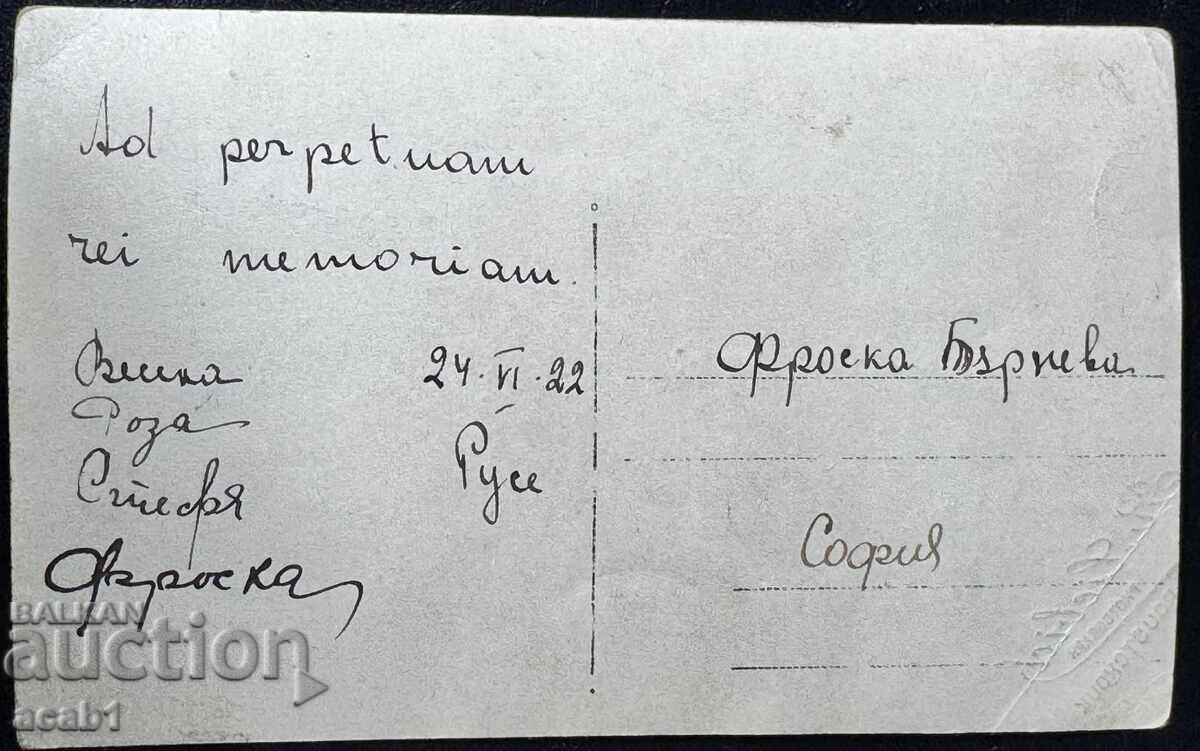 Ad perpetuam
rei memoriam.
24·VI·22
Роза
Стефя
Русе
Фроска
Фроска Бърнева
София
BALKAN
auction
acab1